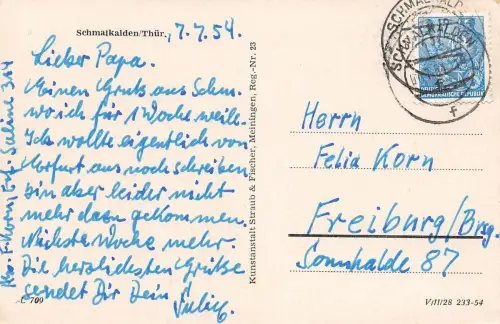 Schmalkalden/Thür., 7.7.54.
Lieber Papa.
Einen Gruß aus Schm.
wo ich für 1 Woche weile.
Ich wollte eigentlich von
Erfurt aus noch schreiben,
bin aber leider nicht
mehr dazu gekommen.
Nächste Woche mehr.
Die herzlichsten Grüße
sendet Dir Dein
L 709
Abs. F. Korn, Erf. Saline 314
Kunstanstalt Straub & Fischer, Meiningen, Reg.-Nr. 23
SCHMALKALDEN
f
DEMOKRATISCHE REPUBLIK
Herrn
Felix Korn
Freiburg/Brsg.
Sonnhalde 87
V/11/28 233-54